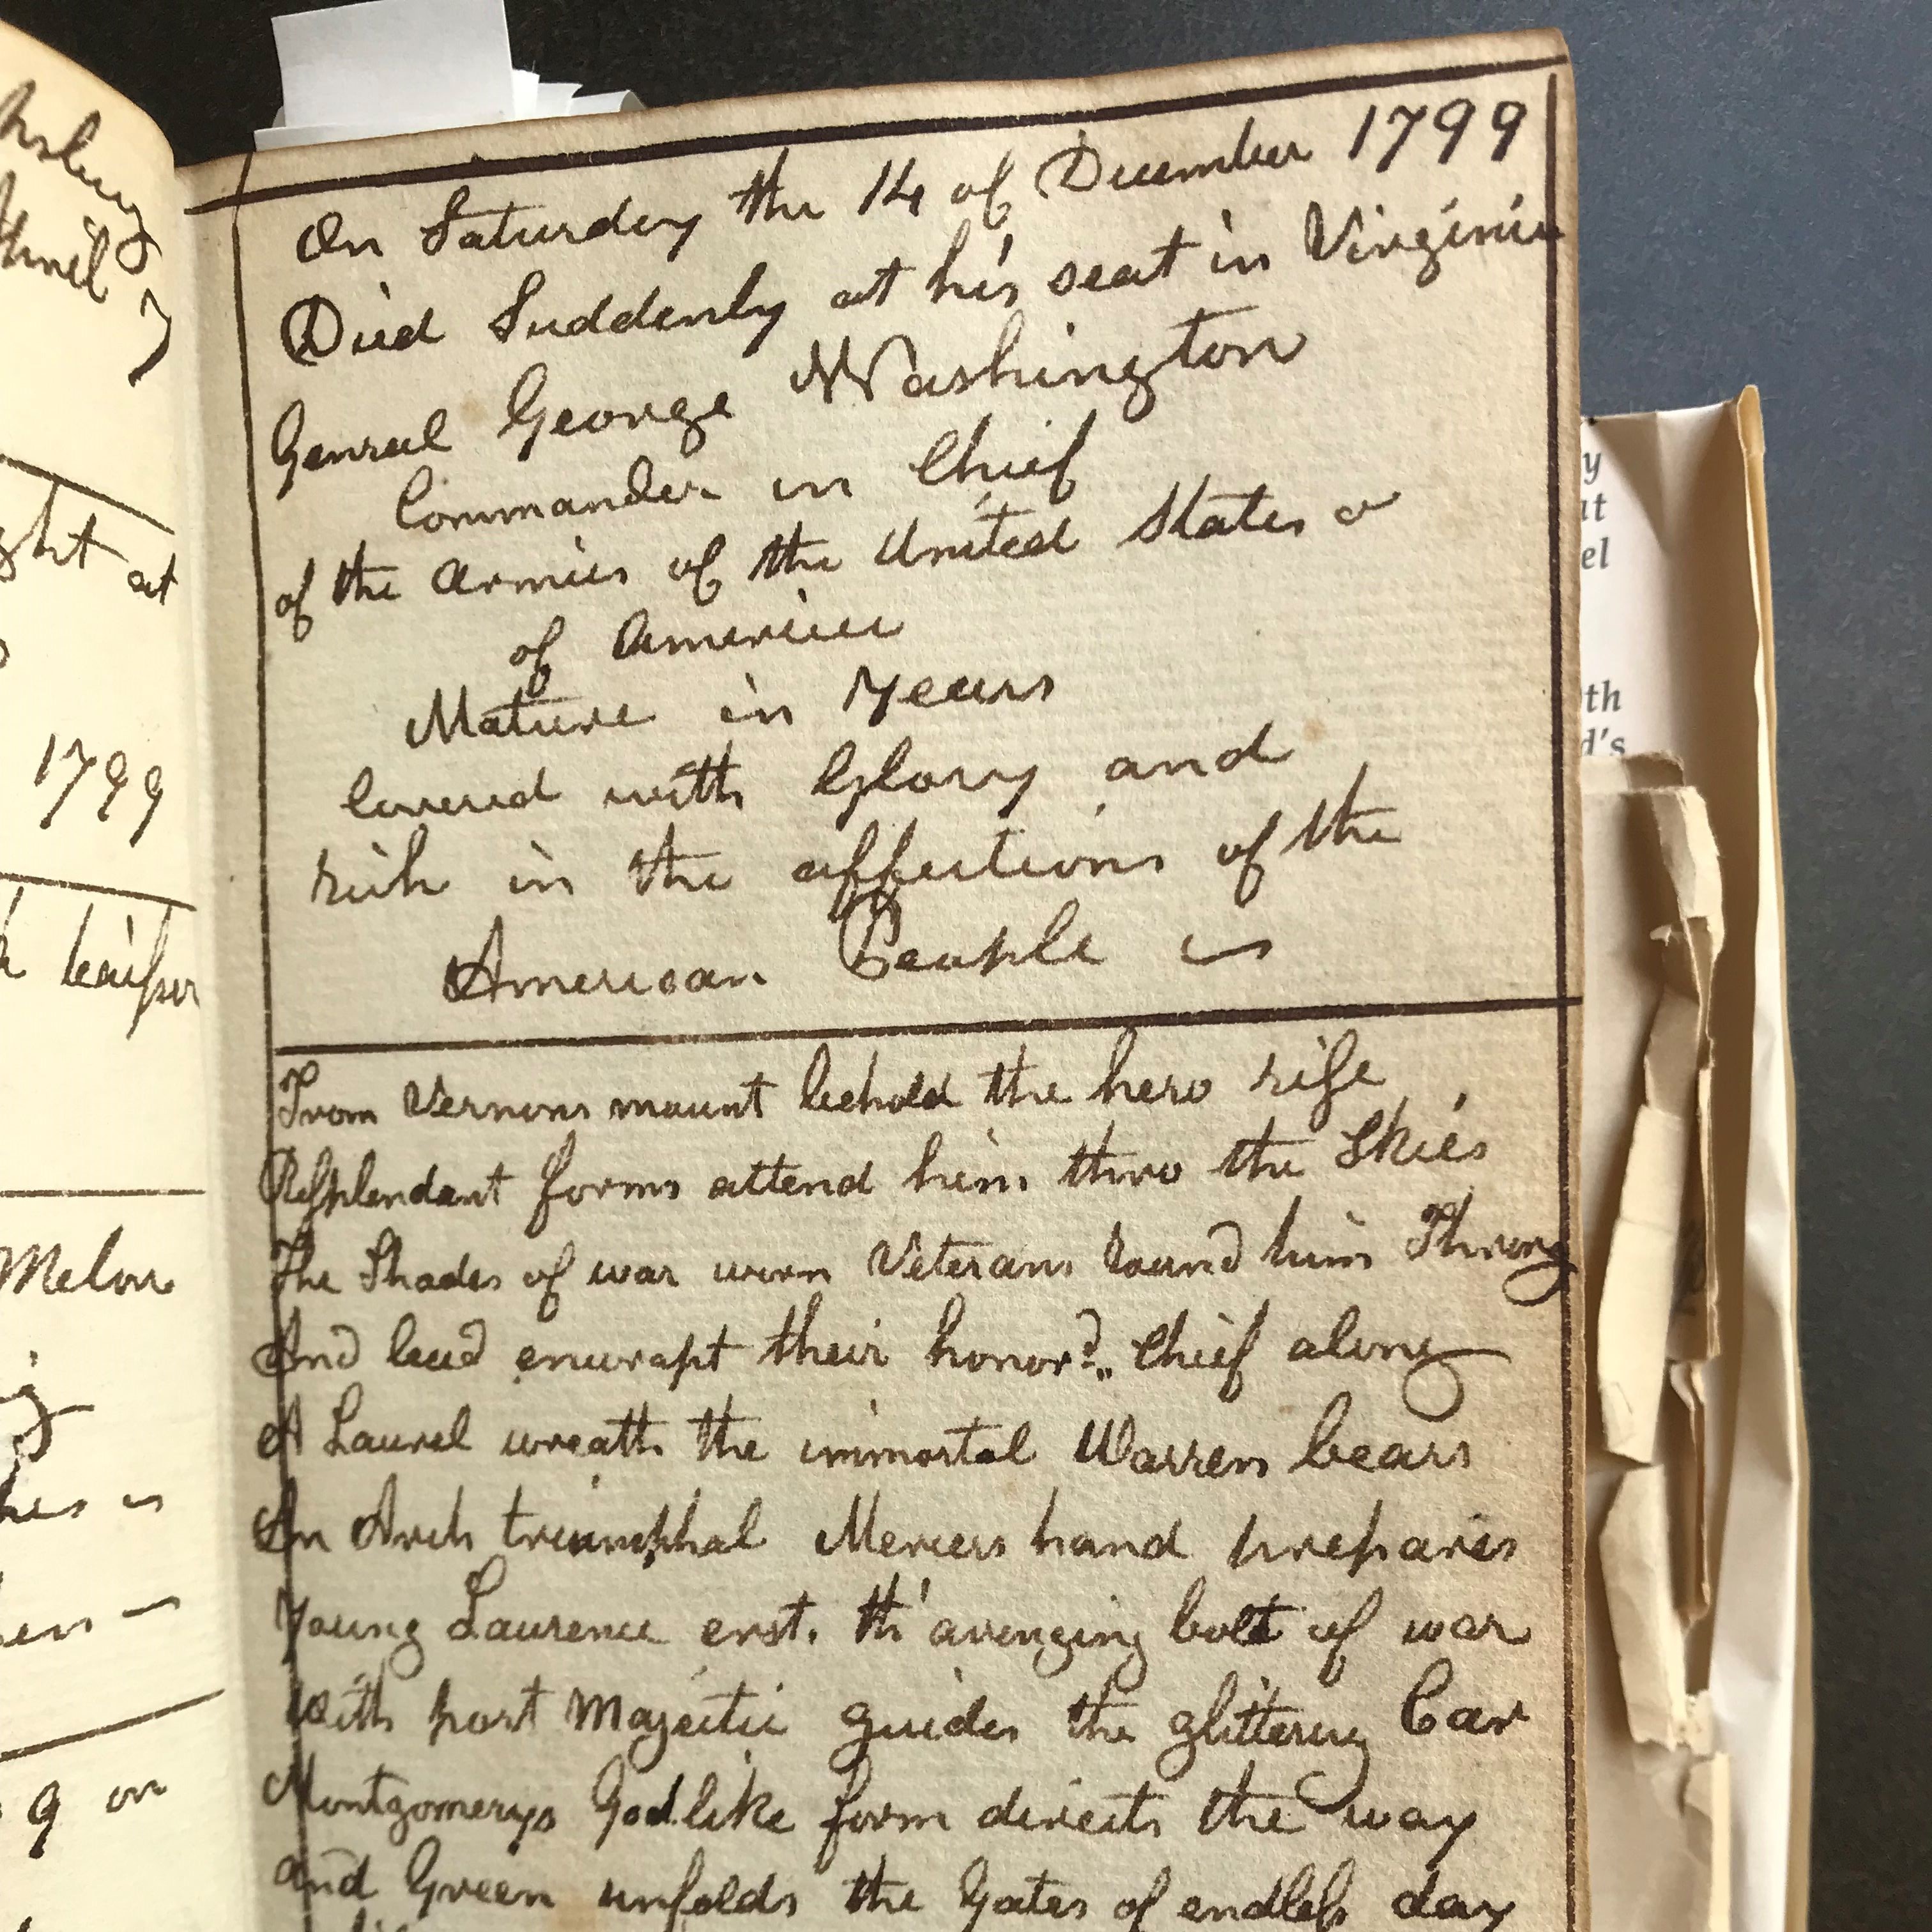 hsbury
thniel
ght at
1799
Melon
9 on
On Saturday the 14 of December 1799
Died Suddenly at his seat in Virginia
Genral George Washington
Commander in Chief
of the Armies of the United States
of America
Mature in Years
Covered with Glory and
rich in the affections of the
American People
From Vernons mount behold the hero rise
Resplendant forms attend him thro the Skies
The Shades of war worn Veterans round him Throng
And lead enwrapt their honord Chief along
A Laurel wreath the immortal Warren bears
An Arch triumphal Mercers hand prepares
Young Laurence erst. th' avenging bolt of war
With port Majestic guides the glittering Car
Montgomerys Godlike form directs the way
and Green unfolds the Gates of endless day
y
at
el
th
d's